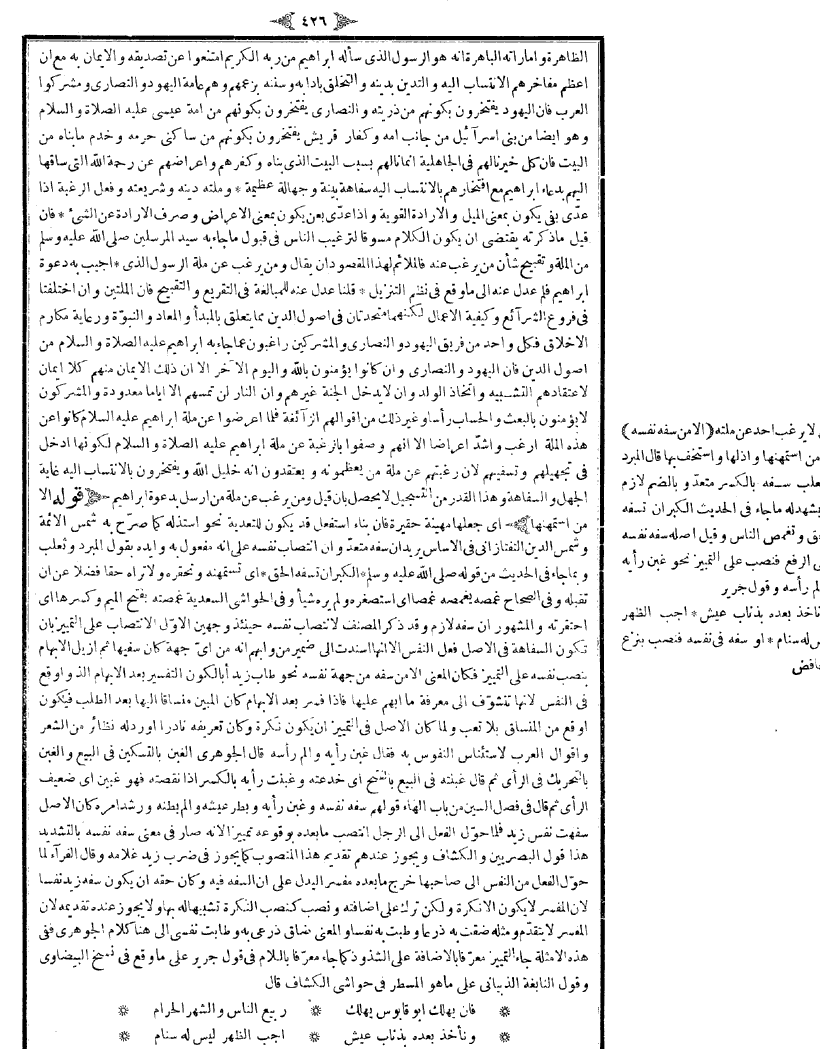 ٤٢٦
الظاهرة واماراته الباهرة انه هو الرسول الذى سأله ابراهيم من ربه الكريم امتنعوا عن تصديقه والايمان به مع ان
اعظم مفاخرهم الانتساب اليه والتدين بدينه والتخلق بادابه وسننه بزعمهم وهم عامة اليهود والنصارى ومشركوا
العرب فان اليهود يفتخرون بكونهم من ذريته والنصارى يفتخرون بكونهم من امة عيسى عليه الصلاة والسلام
وهو ايضا من بنى اسرآئيل من جانب امه وكفار قريش يفتخرون بكونهم من ساكنى حرمه وخدم مابناه من
البيت فان كل خير نالهم فى الجاهلية انما نالهم بسبب البيت الذى بناه وكفرهم واعراضهم عن رحمة الله التى ساقها
اليهم بدعاء ابراهيم مع افتخارهم بالانتساب اليه سفاهة بينة وجهالة عظيمة * وملته دينه وشريعته وفعل الرغبة اذا
عدّى بفى يكون بمعنى الميل والارادة القوية واذا عدّى بعن يكون بمعنى الاعراض وصرف الارادة عن الشئ * فان
قيل ماذكرته يقتضى ان يكون الكلام مسوقا لترغيب الناس فى قبول ماجاء به سيد المرسلين صلى الله عليه وسلم
من الملة وتقبيح شأن من يرغب عنه فالملائم لهذا المقصود ان يقال ومن يرغب عن ملة الرسول الذى * اجيب به دعوة
ابراهيم فلم عدل عنه الى ماوقع فى نظم التنزيل * قلنا عدل عنه للمبالغة فى التقريع والتقبيح فان الملتين وان اختلفتا
فى فروع الشرآئع وكيفية الاعمال لكنهما متحدتان فى اصول الدين مما يتعلق بالمبدأ والمعاد والنبوّة ورعاية مكارم
الاخلاق فكل واحد من فريق اليهود والنصارى والمشركين راغبون عما جاء به ابراهيم عليه الصلاة والسلام من
اصول الدين فان اليهود والنصارى وان كانوا يؤمنون بالله واليوم الآخر الا ان ذلك الايمان منهم كلا ايمان
لاعتقادهم التشبيه واتخاذ الولد وان لايدخل الجنة غيرهم وان النار لن تمسهم الا اياما معدودة والمشركون
لايؤمنون بالبعث والحساب رأسا وغير ذلك من اقوالهم الزآئغة فلما اعرضوا عن ملة ابراهيم عليه السلام كانوا عن
هذه الملة ارغب واشدّ اعراضا الا انهم وصفوا بالرغبة عن ملة ابراهيم عليه الصلاة والسلام لكونها ادخل
فى تجهيلهم وتسفيههم لان رغبتهم عن ملة من يعظمونه ويعتقدون انه خليل الله ويفتخرون بالانتساب اليه غاية
الجهل والسفاهة وهذا القدر من التسجيل لايحصل بان قيل ومن يرغب عن ملة من ارسل بدعوة ابراهيم قوله الا
من استمهنها اى جعلها مهينة حقيرة فان بناء استفعل قد يكون للتعدية نحو استذله كما صرّح به شمس الائمة
وشمس الدين التفتازانى فى الاساس يريد ان سفه متعدّ وان انتصاب نفسه على انه مفعول به وايده بقول المبرد وثعلب
وبما جاء فى الحديث من قوله صلى الله عليه وسلم * الكبر ان تسفه الحق * اى تستمهنه وتحقره ولاتراه حقا فضلا عن ان
تقبله وفى الصحاح غمصه يغمصه غمصا اى استصغره ولم يره شيأ وفى الحواشى السعدية غمصته بفتح الميم وكسرها اى
احتقرته والمشهور ان سفه لازم وقد ذكر المصنف لانتصاب نفسه حينئذ وجهين الاوّل الانتصاب على التمييز بان
تكون السفاهة فى الاصل فعل النفس الا انها اسندت الى ضمير من وابهم انه من اىّ جهة كان سفيها ثم ازيل الابهام
بنصب نفسه على التمييز فكان المعنى الا من سفه من جهة نفسه نحو طاب زيد أبا لكون التفسير بعد الابهام الذ واوقع
فى النفس لانها تتشوّف الى معرفة ما ابهم عليها فاذا فسر بعد الابهام كان المبين منساقا اليها بعد الطلب فيكون
اوقع من المنساق بلا تعب ولما كان الاصل فى التمييز ان يكون نكرة وكان تعريفه نادرا اورد له نظائر من الشعر
واقوال العرب لاستئناس النفوس به فقال غبن رأيه والم رأسه قال الجوهرى الغبن بالتسكين فى البيع والغبن
بالتحريك فى الرأى ثم قال غبنته فى البيع بالفتح اى خدعته وغبنت رأيه بالكسر اذا نقصته فهو غبين اى ضعيف
الرأى ثم قال فى فصل السين من باب الهاء قولهم سفه نفسه وغبن رأيه وبطر عيشه والم بطنه ورشد امره كان الاصل
سفهت نفس زيد فلما حوّل الفعل الى الرجل انتصب مابعده بوقوعه تمييزا لانه صار فى معنى سفه نفسه بالتشديد
هذا قول البصريين والكشاف ويجوز عندهم تقديم هذا المنصوب كما يجوز فى ضرب زيد غلامه وقال الفرآء لما
حوّل الفعل من النفس الى صاحبها خرج مابعده مفسر اليدل على ان السفه فيه وكان حقه ان يكون سفه زيد نفسا
لان المفسر لايكون الا نكرة ولكن ترك على اضافته ونصب كنصب النكرة تشبيها له بها ولا يجوز عنده تقديمه لان
المفسر لايتقدّم ومثله ضقت به ذرعا وطبت به نفسا والمعنى ضاق ذرعى به وطابت نفسى الى هنا كلام الجوهرى ففى
هذه الامثلة جاء التمييز معرّفا بالاضافة على الشذوذ كما جاء معرّفا باللام فى قول جرير على ماوقع فى نسخ البيضاوى
وقول النابغة الذبيانى على ماهو المسطر فى حواشى الكشاف قال
فان يهلك ابو قابوس يهلك * ربيع الناس والشهر الحرام
ونأخذ بعده بذناب عيش * اجب الظهر ليس له سنام
لايرغب احد عن ملته (الا من سفه نفسه)
من استمهنها واذلها واستخف بها قال المبرد
علب سفه بالكسر متعدّ وبالضم لازم
يشهد له ماجاء فى الحديث الكبر ان تسفه
ق وتغمص الناس وقيل اصله سفه نفسه
ى الرفع فنصب على التمييز نحو غبن رأيه
لم رأسه وقول جرير
نأخذ بعده بذناب عيش * اجب الظهر
س له سنام * او سفه فى نفسه فنصب بنزع
خافض